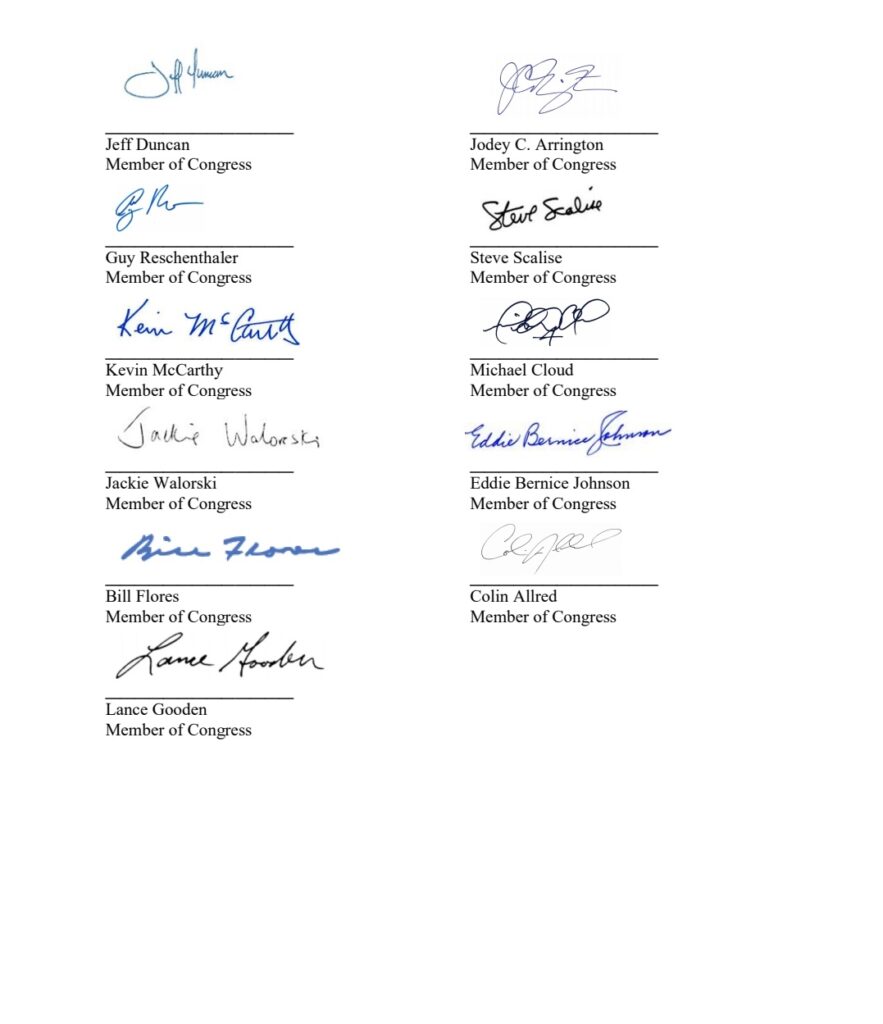 Jeff Duncan
Jeff Duncan
Member of Congress
Jodey C. Arrington
Member of Congress
Guy Reschenthaler
Member of Congress
Steve Scalise
Steve Scalise
Member of Congress
Kevin McCarthy
Kevin McCarthy
Member of Congress
Michael Cloud
Member of Congress
Jackie Walorski
Jackie Walorski
Member of Congress
Eddie Bernice Johnson
Eddie Bernice Johnson
Member of Congress
Bill Flores
Bill Flores
Member of Congress
Colin Allred
Member of Congress
Lance Gooden
Lance Gooden
Member of Congress